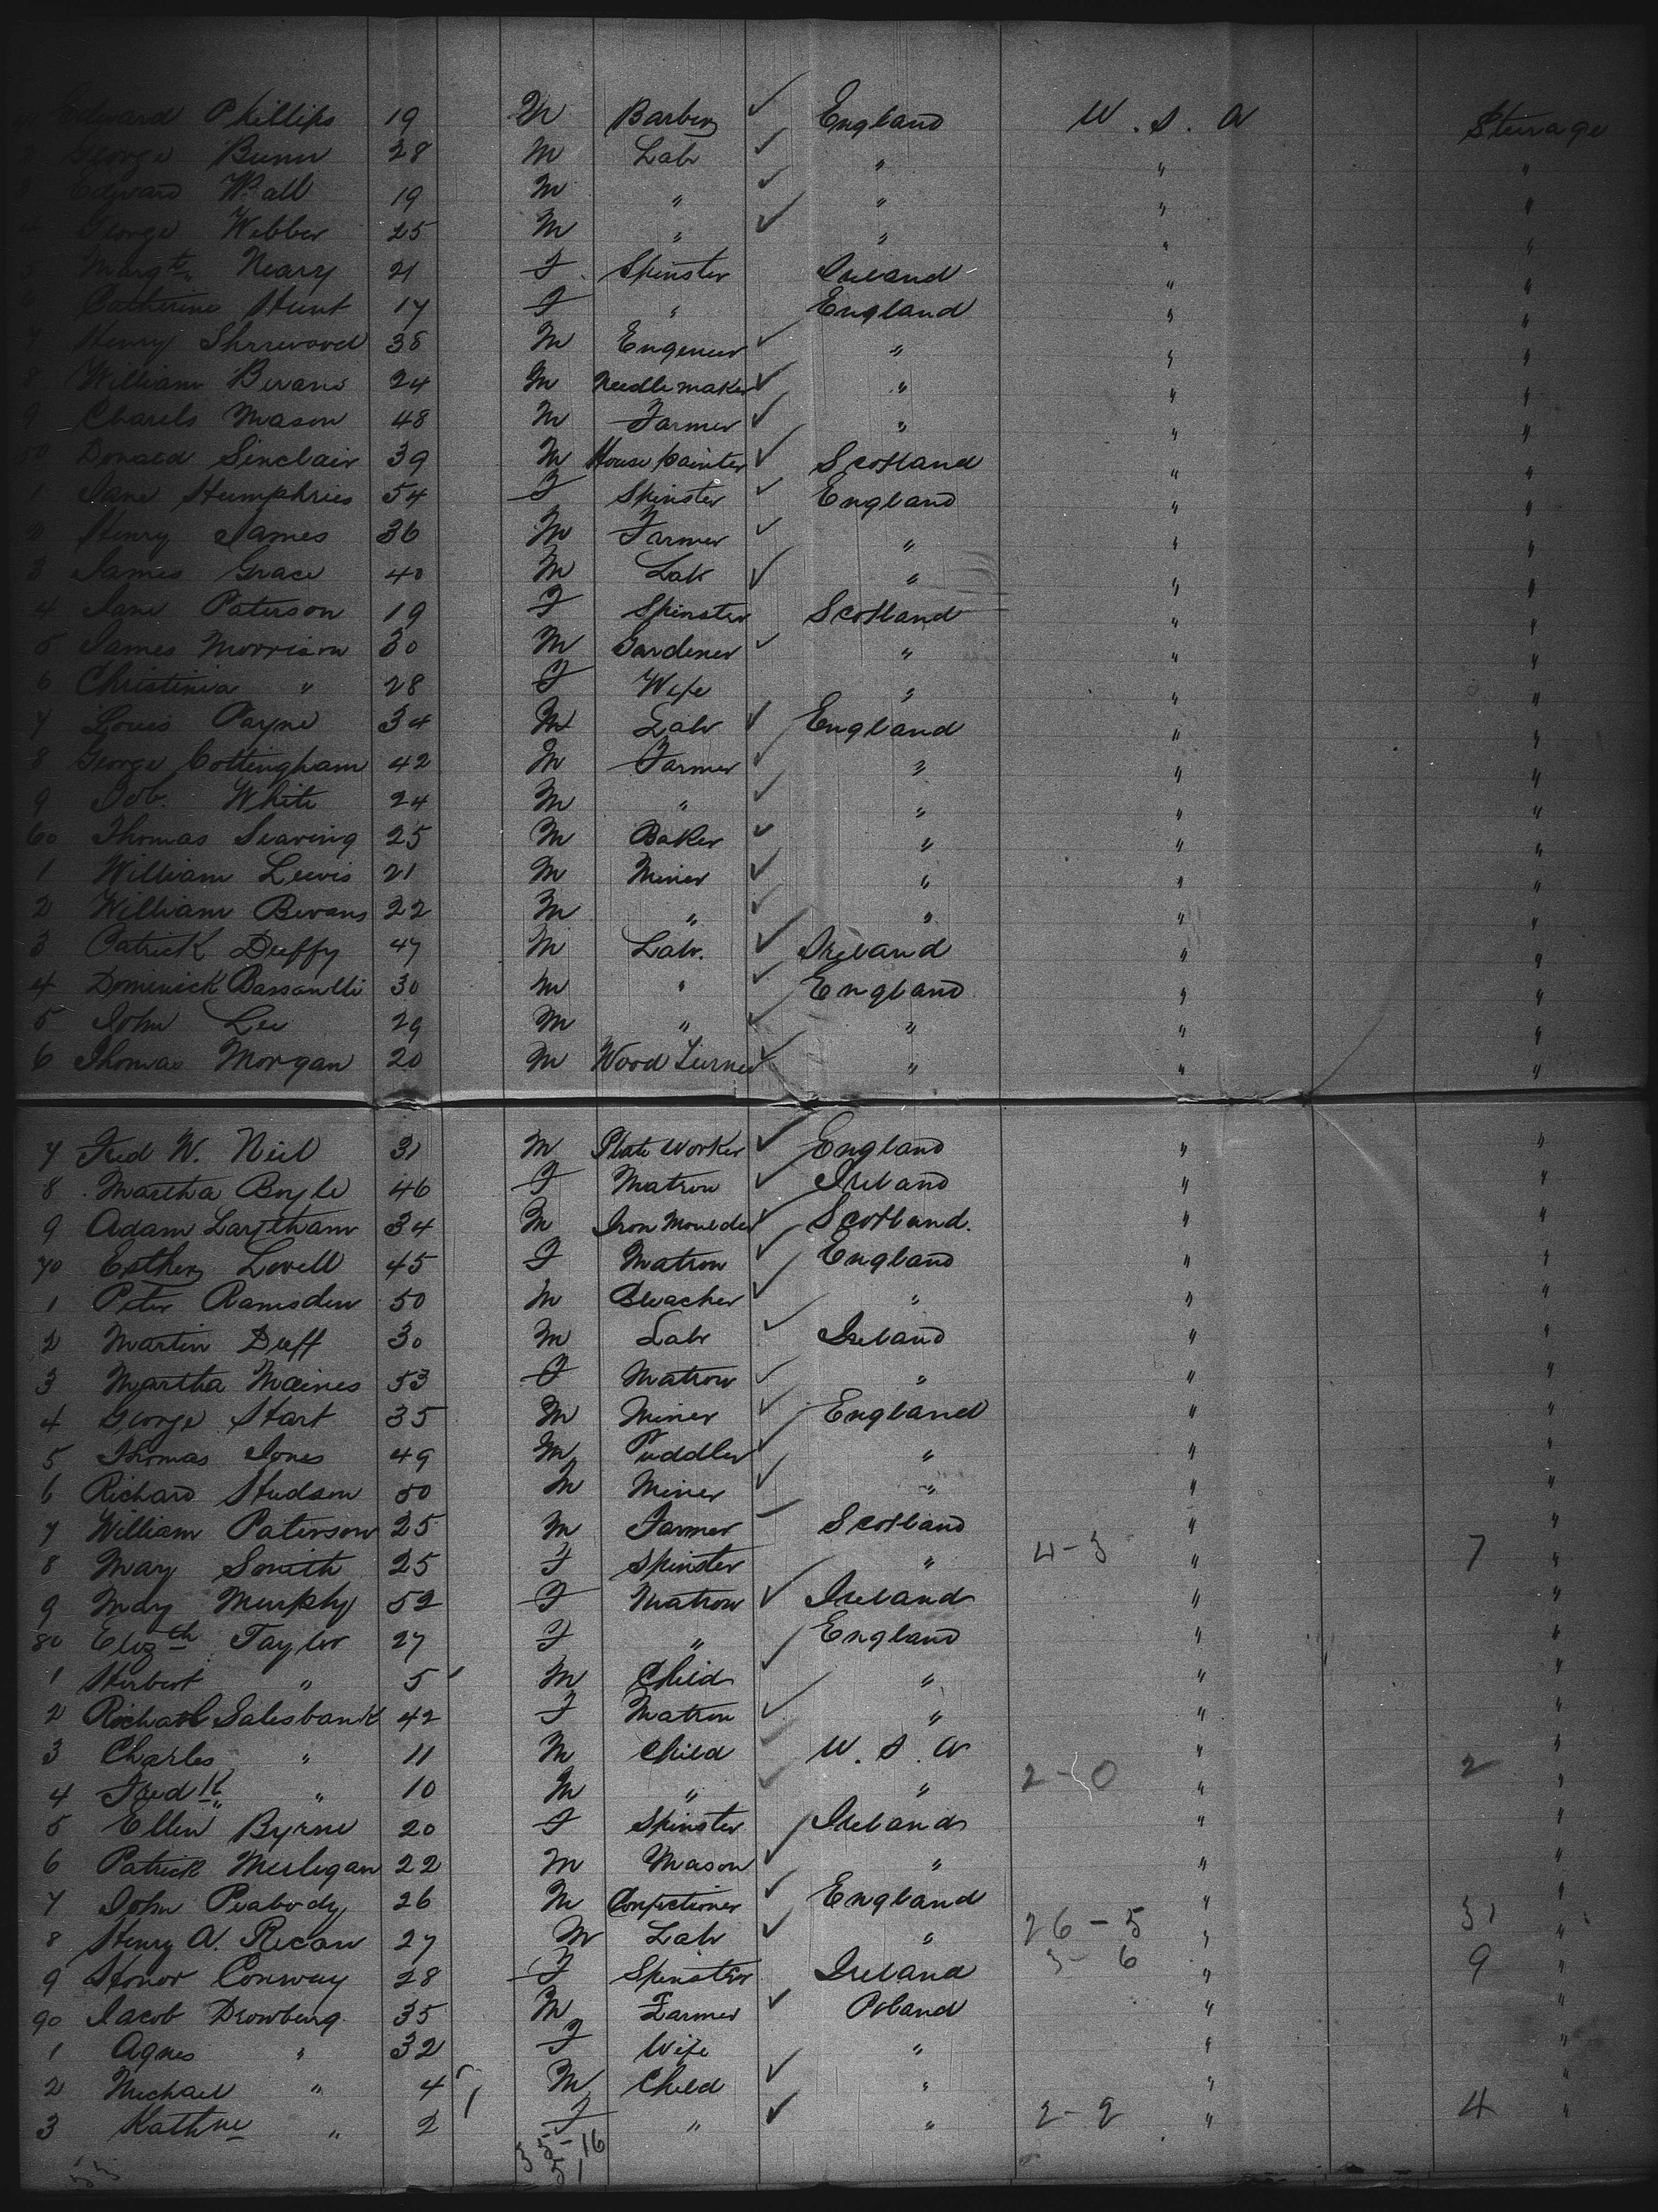 Edward Phillips 19 M Barber ✓ England U. S. A Sturage
George Bunn 28 M Lab ✓ " " "
Edward Wall 19 M " ✓ " " "
George Webber 25 M " ✓ " " "
Margth Neary 21 F Spinster Ireland " "
6 Catherine Hunt 17 F " England " "
7 Henry Sherwood 38 M Engeneer ✓ " " "
8 William Bevans 24 M Needle maker ✓ " " "
9 Charels Mason 48 M Farmer ✓ " " "
50 Donald Sinclair 39 M House painter ✓ Scotland " "
1 Jane Humphries 54 F Spinster ✓ England " "
2 Henry James 36 M Farmer ✓ " " "
3 James Grace 40 M Lab ✓ " " "
4 Jane Paterson 19 F Spinster Scotland " "
5 James Morrison 30 M Gardener ✓ " " "
6 Christinia " 28 F Wife " " "
7 Louis Payne 34 M Lab ✓ England " "
8 George Cottingham 42 M Farmer ✓ " " "
9 Job. White 24 M " ✓ " " "
60 Thomas Seaving 25 M Baker ✓ " " "
1 William Lewis 21 M Miner ✓ " " "
2 William Bevans 22 M " ✓ " " "
3 Patrick Duffy 47 M Lab. ✓ Ireland " "
4 Dominick 30 M " ✓ England " "
5 John Lee 29 M " ✓ " " "
6 Thomas Morgan 20 M Wood Turner ✓ " " "
7 Fred W. Neil 31 M Plate Worker ✓ England " "
8 Martha Boyle 46 F Matron ✓ Ireland " "
9 Adam 34 M Iron Moulder ✓ Scotland. " "
70 Esther Lovell 45 F Matron ✓ England " "
1 Peter Ramsden 50 M Bleacher ✓ " " "
2 Martin Duff 30 M Lab ✓ Ireland " "
3 Martha Maines 53 F Matron ✓ " " "
4 George Start 35 M Miner ✓ England " "
5 Thomas Jones 49 M Puddler ✓ " " "
6 Richard Hudson 50 M Miner ✓ " " "
7 William Paterson 25 M Farmer Scotland " "
8 Mary Smith 25 F Spinster " 4-3 " 7 "
9 Mary Murphy 52 F Matron ✓ Ireland " "
80 Elizth Taylor 27 F " ✓ England " "
1 Herbert " 5 M Child ✓ " " "
2 Rachael Salesbank 42 F Matron ✓ " " "
3 Charles " 11 M Child ✓ U. S. A " "
4 Fredk " 10 M " ✓ " 2-0 " 2 "
5 Ellen Byrne 20 F Spinster ✓ Ireland " "
6 Patrick Mulligan 22 M Mason ✓ " " "
7 John Peabody 26 M Confectioner ✓ England " "
8 Henry A. 27 M Lab ✓ " 26-5 " 31 "
9 Honor Conway 28 F Spinster Ireland 3-6 " 9 "
90 Jacob Drowburg 35 M Farmer ✓ Poland " "
1 Agnes " 32 F Wife " " "
2 Michael " 4 M Child ✓ " " "
3 Kathne " 2 F " ✓ " 2-2 " 4 "
35-16
51